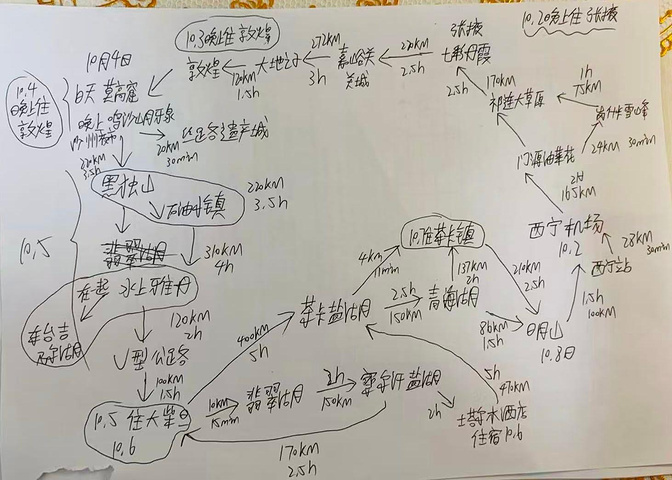 10.20晚上住 张掖
10.3晚住 敦煌
10月4日
10.4
晚上住
敦煌
白天 莫高窟
晚上 鸣沙山月牙泉
沙州夜市
敦煌
120KM
1.5h
大地之子
272KM
3h
嘉峪关
关城
220KM
2.5h
张掖
七彩丹霞
2.5h
170KM
祁连大草原
1h
75KM
岗什卡雪峰
24KM 30min
门源油菜花
2h
165KM
西宁机场
10.2
23KM
30min
西宁站
1.5h
100KM
日月山
10.8日
20KM
30min
220KM
3.5h
黑独山
石油小镇
220KM
3.5h
10.5
翡翠湖
310KM
4h
水上雅丹
120KM
2h
U型公路
100KM
1.5h
10.5 住大柴旦
10.6
10KM
15min
翡翠湖
2h
150KM
察尔汗盐湖
170KM
2.5h
2h
住宿10.6
5h
470KM
400KM
5h
茶卡盐湖
4KM
11min
10.7住茶卡镇
2.5h
150KM
青海湖
137KM
2h
210KM
2.5h
86KM
1.5h